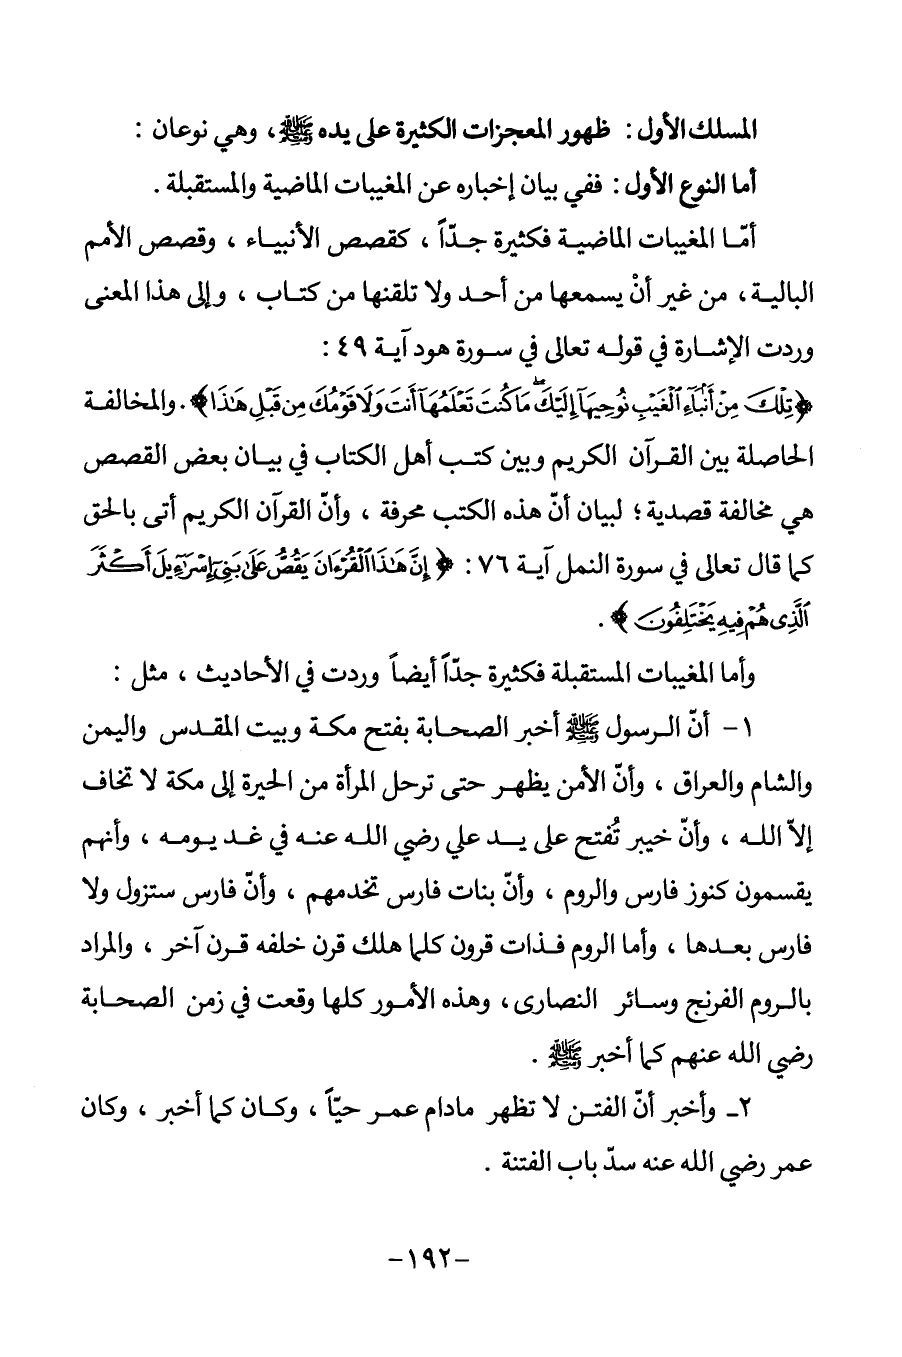 المسلك الأول : ظهور المعجزات الكثيرة على يده ﷺ، وهي نوعان :
أما النوع الأول : ففي بيان إخباره عن المغيبات الماضية والمستقبلة .
أمّا المغيبات الماضية فكثيرة جدّاً ، كقصص الأنبياء ، وقصص الأمم
البالية ، من غير أنْ يسمعها من أحد ولا تلقنها من كتاب ، وإلى هذا المعنى
وردت الإشارة في قوله تعالى في سورة هود آية ٤٩ :
﴿ تِلْكَ مِنْ أَنۢبَآءِ ٱلْغَيْبِ نُوحِيهَآ إِلَيْكَ ۖ مَا كُنتَ تَعْلَمُهَآ أَنتَ وَلَا قَوْمُكَ مِن قَبْلِ هَـٰذَا ﴾ . والمخالفة
الحاصلة بين القرآن الكريم وبين كتب أهل الكتاب في بيان بعض القصص
هي مخالفة قصدية ؛ لبيان أنّ هذه الكتب محرفة ، وأنّ القرآن الكريم أتى بالحق
كما قال تعالى في سورة النمل آية ٧٦ : ﴿ إِنَّ هَـٰذَا ٱلْقُرْءَانَ يَقُصُّ عَلَىٰ بَنِىٓ إِسْرَٰٓءِيلَ أَكْثَرَ
ٱلَّذِى هُمْ فِيهِ يَخْتَلِفُونَ ﴾ .
وأما المغيبات المستقبلة فكثيرة جدّاً أيضاً وردت في الأحاديث ، مثل :
١- أنّ الرسول ﷺ أخبر الصحابة بفتح مكة وبيت المقدس واليمن
والشام والعراق ، وأنّ الأمن يظهر حتى ترحل المرأة من الحيرة إلى مكة لا تخاف
إلاّ الله ، وأنّ خيبر تُفتح على يد علي رضي الله عنه في غد يومه ، وأنهم
يقسمون كنوز فارس والروم ، وأنّ بنات فارس تخدمهم ، وأنّ فارس ستزول ولا
فارس بعدها ، وأما الروم فذات قرون كلما هلك قرن خلفه قرن آخر ، والمراد
بالروم الفرنج وسائر النصارى ، وهذه الأمور كلها وقعت في زمن الصحابة
رضي الله عنهم كما أخبر ﷺ .
٢ـ وأخبر أنّ الفتن لا تظهر مادام عمر حيّاً ، وكان كما أخبر ، وكان
عمر رضي الله عنه سدّ باب الفتنة .
-١٩٢-